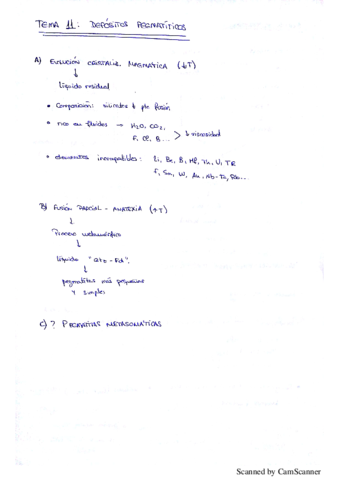 TEMA 11: DEPÓSITOS PEGMATÍTICOS
A) EVOLUCIÓN CRISTALIZ. MAGMÁTICA (↓T)
↓
líquido residual
• Composición: silicatada ↓ pto fusión
• rico en fluidos → H2O, CO2,
F, Cl, B... > ↓ viscosidad
• elementos incompatibles: Li, Be, B, Hf, Th, U, TR
F, Sn, W, Au, Nb-Ta, Rb...
B) FUSIÓN PARCIAL - ANATEXIA (↑T)
↓
Proceso metamórfico
↓
líquido "Qtz - Fdk".
↓
pegmatitas más pequeñas
y simples
C) ? PEGMATITAS METASOMÁTICAS
Scanned by CamScanner